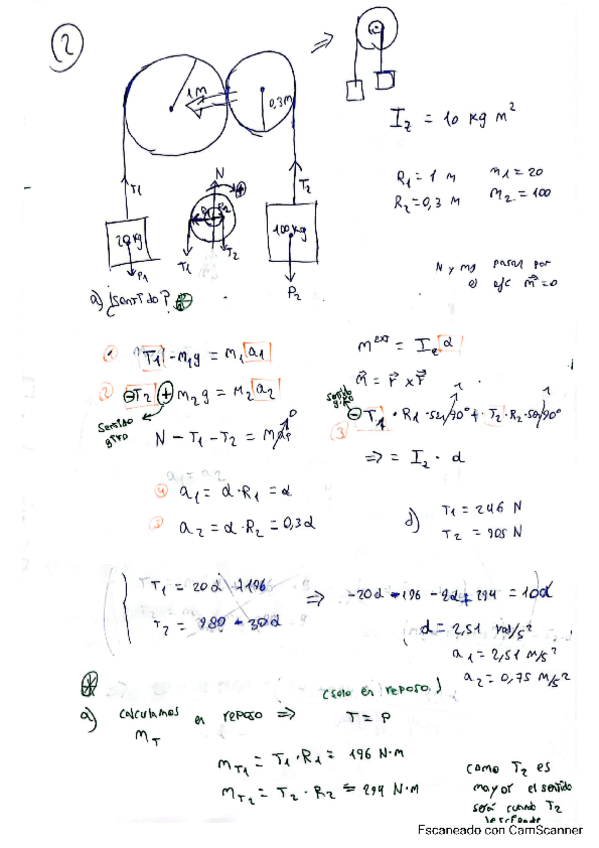 2
1 m
0,3 m
I_z = 10 kg m²
R₁ = 1 m   m₁ = 20
R₂ = 0,3 m   m₂ = 100
T₁
N
T₂
20 kg
P₁
R₁ R₂
T₁
T₂
100 kg
P₂
N y mg pasan por
el eje m⃗ = 0
a) ¿sentido?
① T₁ - m₁g = m₁ a₁
② -T₂ + m₂g = m₂ a₂
sentido giro
N - T₁ - T₂ = m a 0
a₁ = a₂
m^ext = I_e α
m⃗ = r⃗ x F⃗
sentido giro
③ - T₁ · R₁ · sen 90° + T₂ · R₂ · sen 90°
1 1
=> = I_z · α
④ a₁ = α · R₁ = α
⑤ a₂ = α · R₂ = 0,3α
d) T₁ = 246 N
T₂ = 905 N
T₁ = 20α + 196
T₂ = 980 - 30α
=> -20α - 196 - 9α + 294 = 10α
α = 2,51 rad/s²
a₁ = 2,51 m/s²
a₂ = 0,75 m/s²
a) calculamos en reposo => (solo en reposo) T = P
m_T
m_T₁ = T₁ · R₁ = 196 N·m
m_T₂ = T₂ · R₂ = 294 N·m
como T₂ es
mayor el sentido
será cuando T₂
desciende
Escaneado con CamScanner